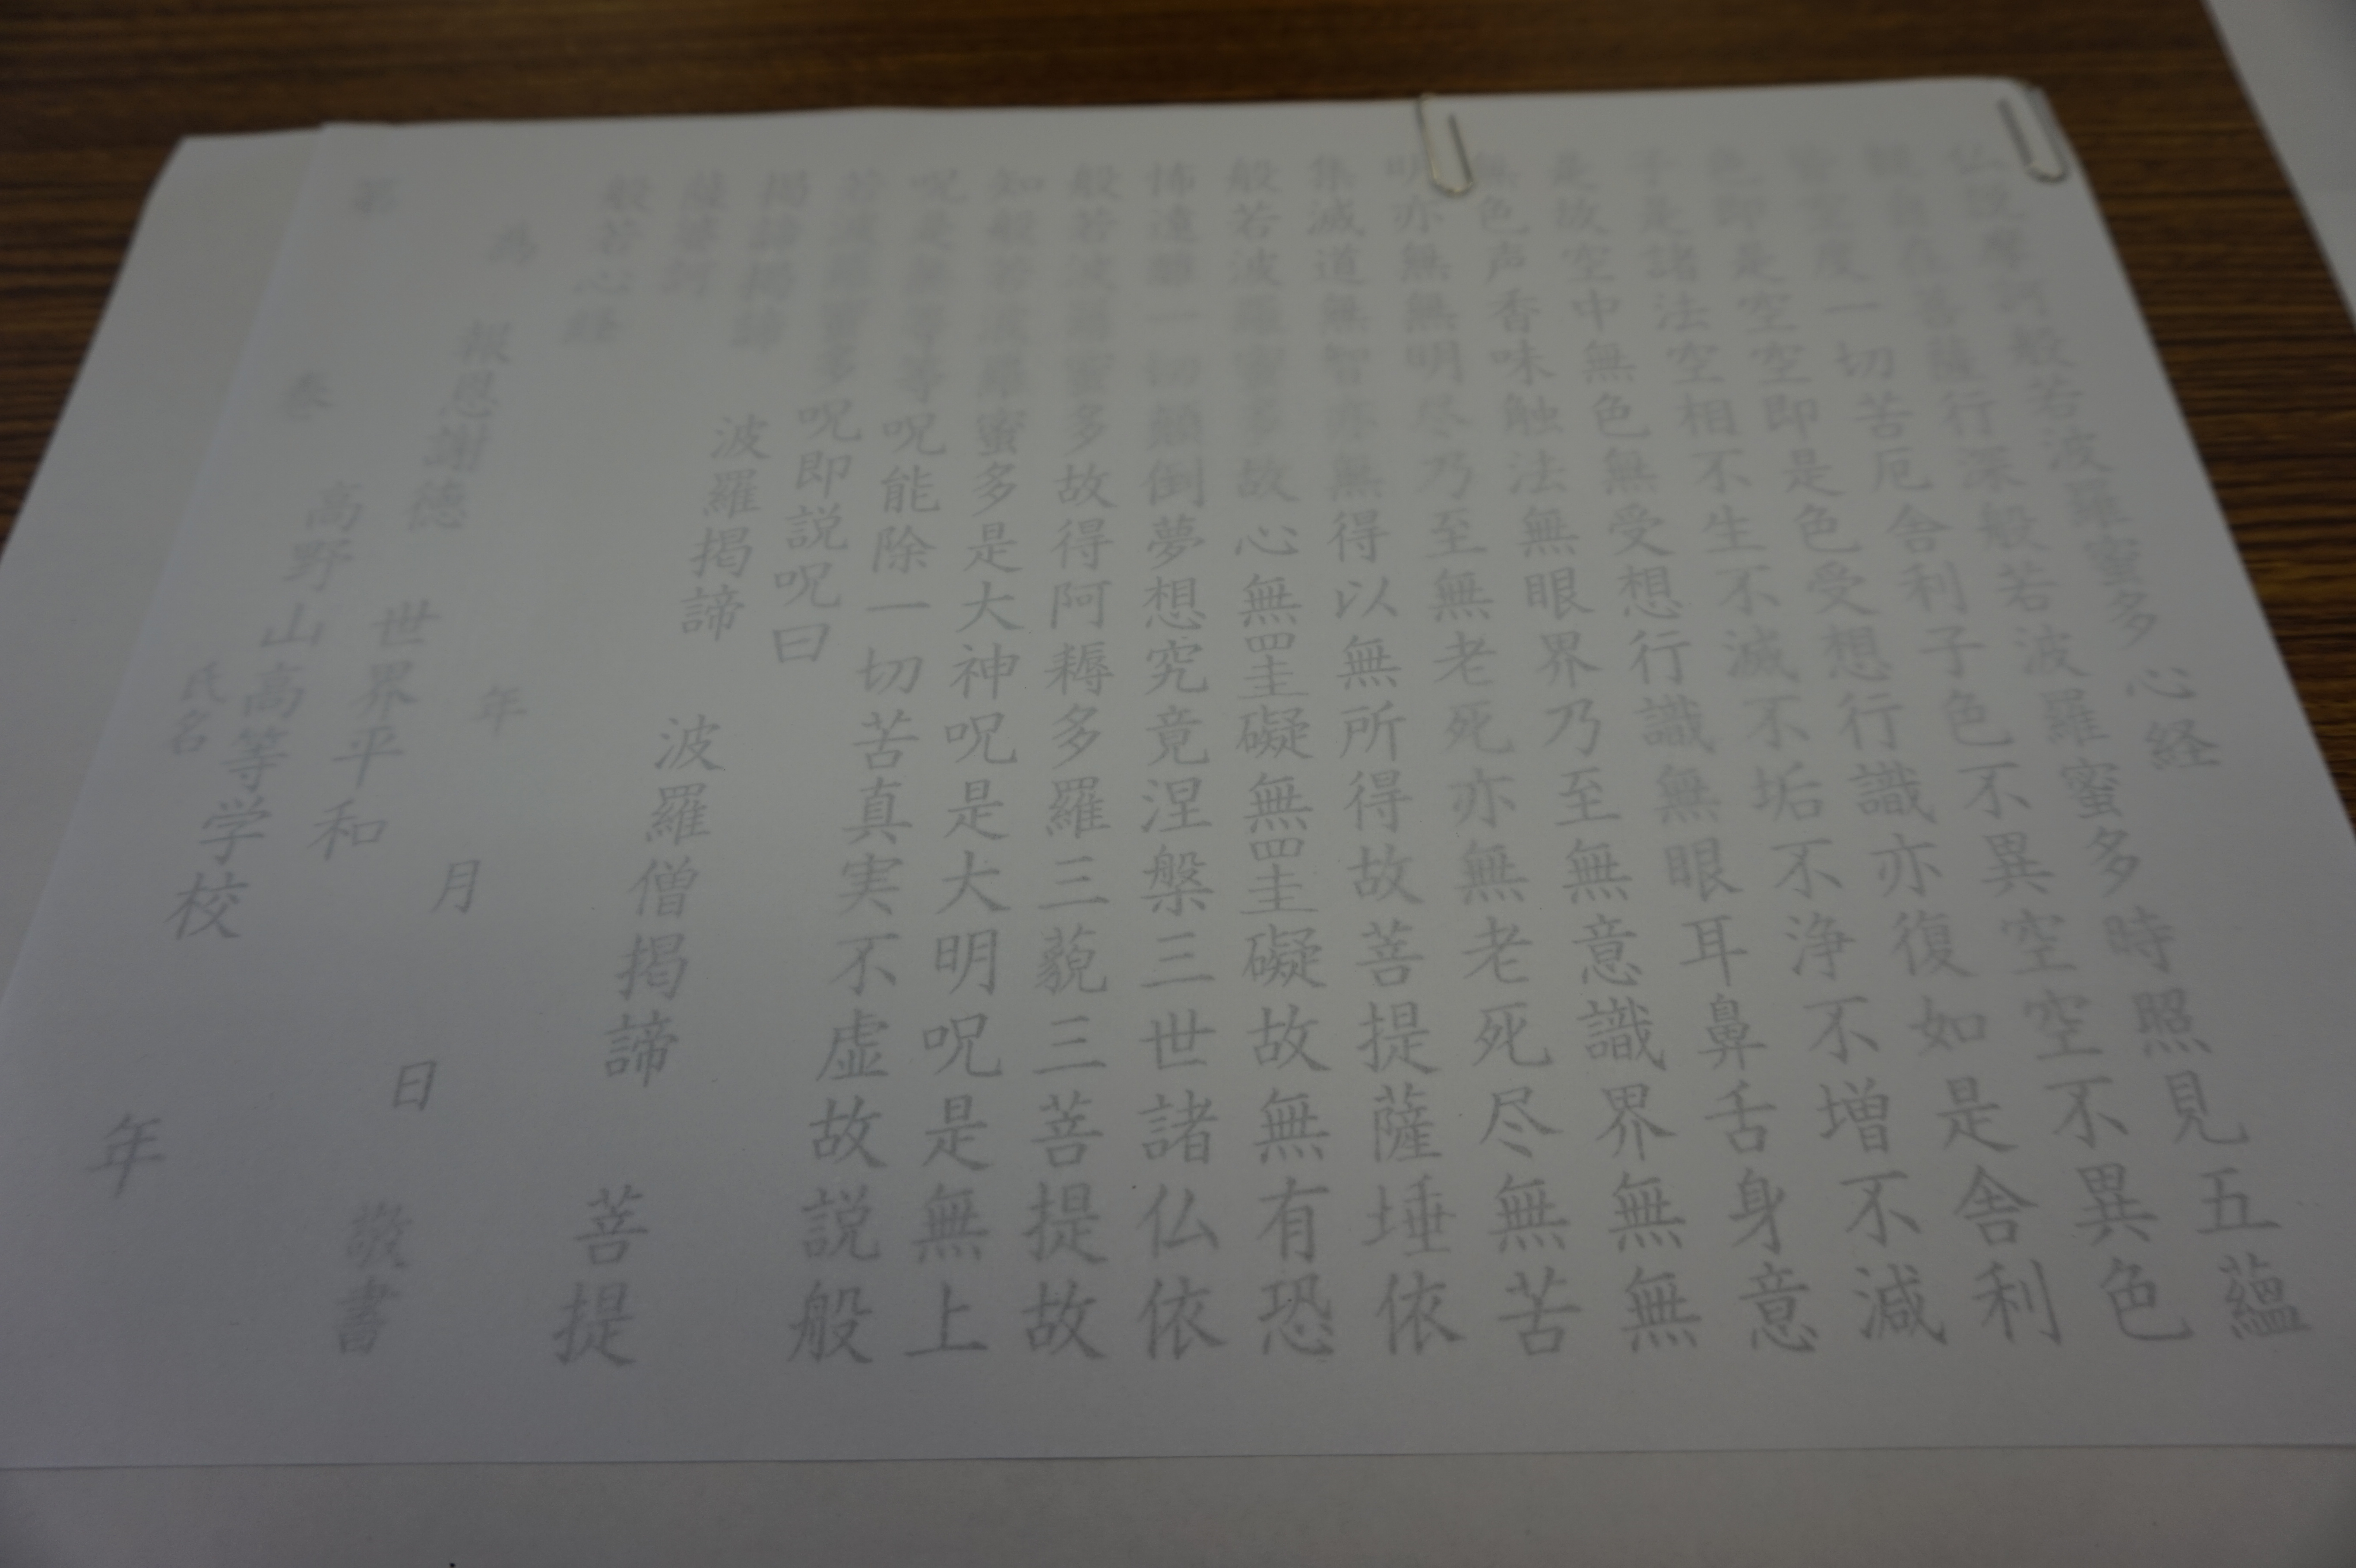 仏説摩訶般若波羅蜜多心経
観自在菩薩行深般若波羅蜜多時照見五蘊
皆空度一切苦厄舎利子色不異空空不異色
色即是空空即是色受想行識亦復如是舎利
子是諸法空相不生不滅不垢不浄不増不減
是故空中無色無受想行識無眼耳鼻舌身意
無色声香味触法無眼界乃至無意識界無無
明亦無無明尽乃至無老死亦無老死尽無苦
集滅道無智亦無得以無所得故菩提薩埵依
般若波羅蜜多故心無罣礙無罣礙故無有恐
怖遠離一切顛倒夢想究竟涅槃三世諸仏依
般若波羅蜜多故得阿耨多羅三藐三菩提故
知般若波羅蜜多是大神呪是大明呪是無上
呪是無等等呪能除一切苦真実不虚故説般
若波羅蜜多呪即説呪曰
掲諦掲諦 波羅掲諦 波羅僧掲諦 菩提
薩婆訶
般若心経 年 月 日 敬書
為 報恩謝徳 世界平和
高野山高等学校 年
第 巻 氏名